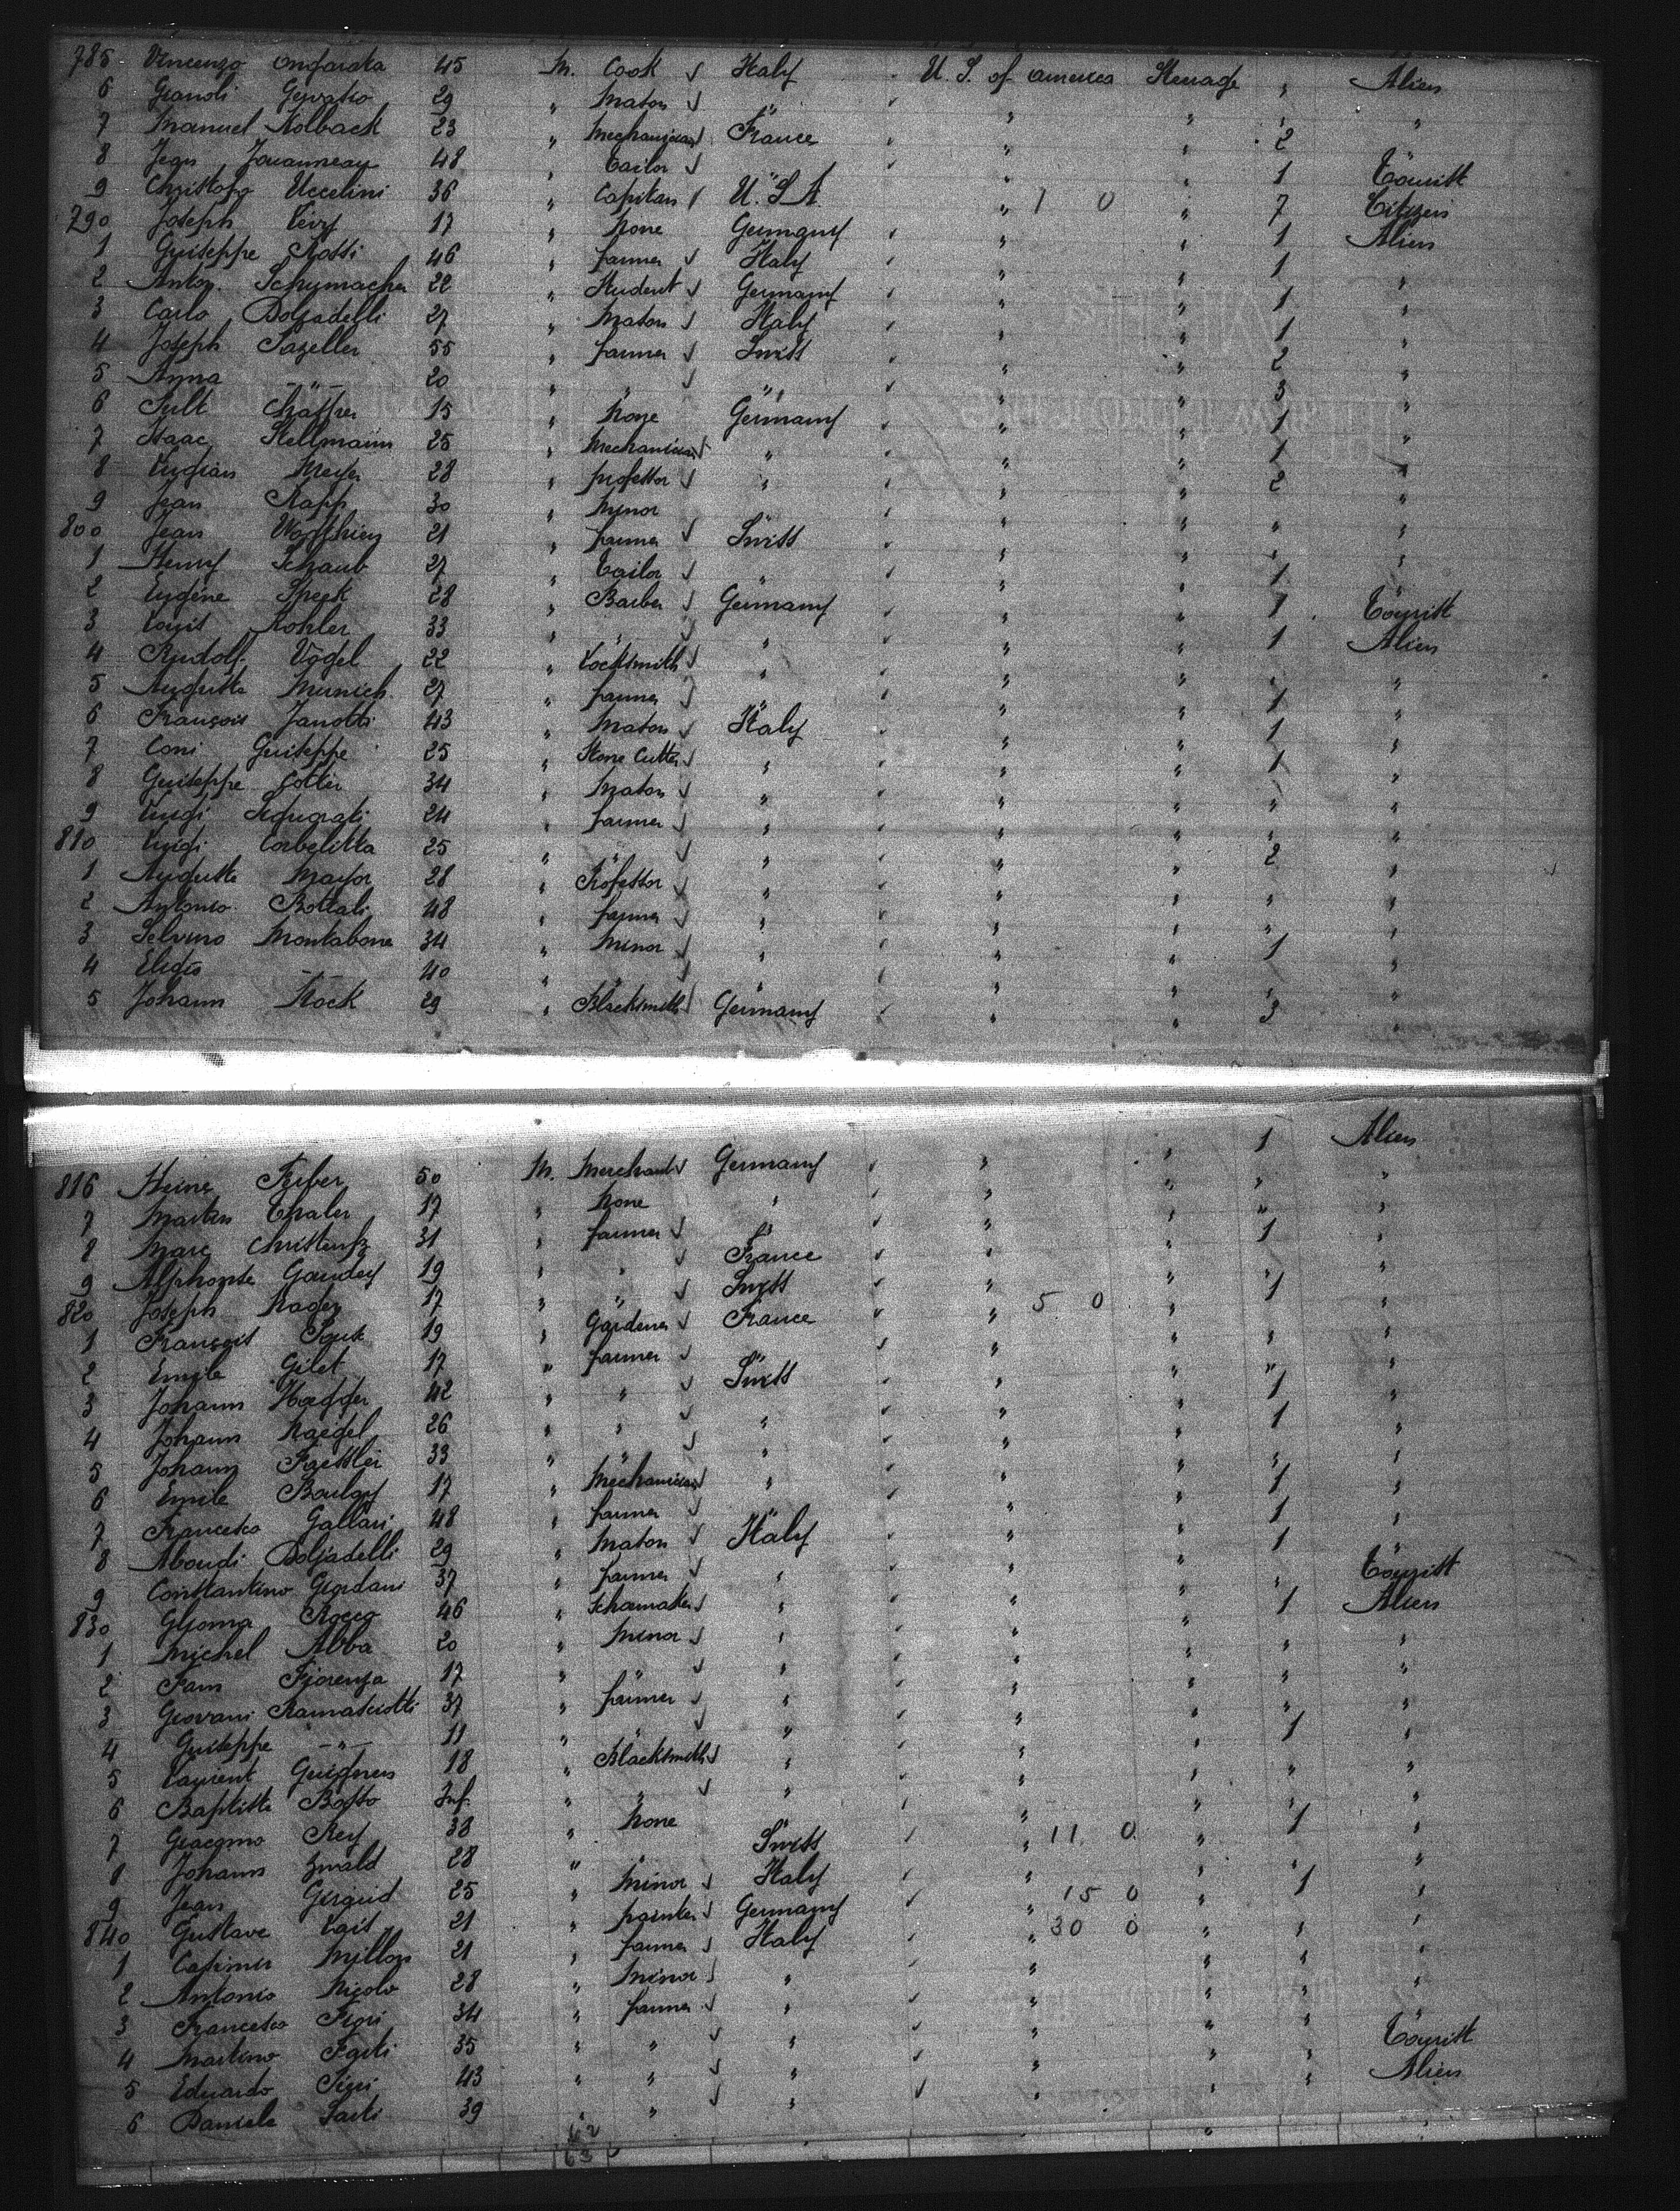 785 Vincenzo Ongarata 45 M. Cook Italy U. S. of America Steerage " Alien
6 Gianoli Gervasio 29 " Mason " " " " "
7 Manuel Kolback 23 " Mechanician France " " 2
8 Jean Jouanneau 48 " Tailor " " " 1 Tourist
9 Christoforo Uccelini 36 " Capitan U. S. A. " 1 0 " 7 Citizen
790 Joseph Levy 17 " None Germany " " 1 Alien
1 Guiseppe Rossi 46 " farmer Italy " " 1 "
2 Anton Schumacher 22 " Student Germany " " 1 "
3 Carlo Bolzadelli 27 " Mason Italy " " 1 "
4 Joseph Sazeller 55 " farmer Swiss " " 2 "
5 Anna -"- 20 " " " " " 3 "
6 Chaffner 15 " None Germany " " 1 "
7 Isaac Stellmann 25 " Mechanician " " " 1 "
8 Lucian Meyer 28 " professor " " " 2 "
9 Jean Rapp 30 " Minor " " " "
800 Jean 21 " farmer Swiss " " " "
1 Henry Schaub 27 " Tailor " " " 1
2 Eugene Speek 28 " Barber Germany " " 1 Tourist
3 Louis Kohler 33 " " " " " 1 Alien
4 Rudolf Vogel 22 " Locksmith " " " " "
5 Auguste Munich 27 " farmer " " " 1 "
6 François Janotti 43 " Mason Italy " " 1 "
7 Coni Guiseppe 25 " Stone Cutter " " " 1 "
8 Guiseppe Gottir 34 " Mason " " " " "
9 Luigi 24 " farmer " " " " "
810 Luigi Corbelitta 25 " " " " " 2 "
1 Auguste Mayor 28 " Professor " " " "
2 Antonio Bottali 48 " farmer " " " " "
3 Selvino Montabone 34 " Minor " " " 1 "
4 Eligio -"- 40 " " " " " " "
5 Johann Stock 29 " Blacksmith Germany " " 3 "
1 Alien
816 Heine Ferber 50 M. Merchant Germany " " " "
7 Martin Thaler 17 " None " " " " "
8 Marc Christentz 31 " farmer " " " 1 "
9 Alphonse Gaudey 19 " " France " " "
820 Joseph Nader 17 " " Swiss " 5 0 " 1 "
1 François 19 " Gardener France " " " "
2 Emile Gilet 17 " farmer " " " "
3 Johann Haegger 42 " " Swiss " " 1 "
4 Johann Naegel 26 " " " " " 1 "
5 Johann Faessler 33 " " " " " " "
6 Emile Boulay 17 " Mechanician " " " 1 "
7 Francesco Gallari 48 " farmer " " 1 "
8 Aboudi Bolzadelli 29 " Mason Italy " " 1
9 Constantino Giordani 37 " farmer " " " " Tourist
830 Glioma Rocco 46 " Schoemaker " " " 1 Alien
1 Michel Abba 20 " Minor " " " " "
2 Fiorenza 17 " " " " " " "
3 Giovani Ramasciotti 37 " farmer " " " " "
4 Guiseppe -"- 11 " " " " " 1 "
5 Laurent 18 " Blacksmith " " " " "
6 Baptiste Bosso Inf. " " " " " " "
7 Giacomo Rey 38 " None " 11 0 " 1 "
8 Johann Zwald 28 " " Swiss " "
9 Jean Geraud 25 " Minor Italy " 15 0 " 1 "
840 Gustave Lais 21 " painter Germany " 30 0 " " "
1 Casimir Millon 21 " farmer Italy " " "
2 Antonio Nigolo 28 " Minor " " " " "
3 Francesco 34 " farmer " " " " "
4 Martino 35 " " " " " " Tourist
5 Eduardo 43 " " " " " " Alien
6 Daniele Sarti 39 " " " " "
63